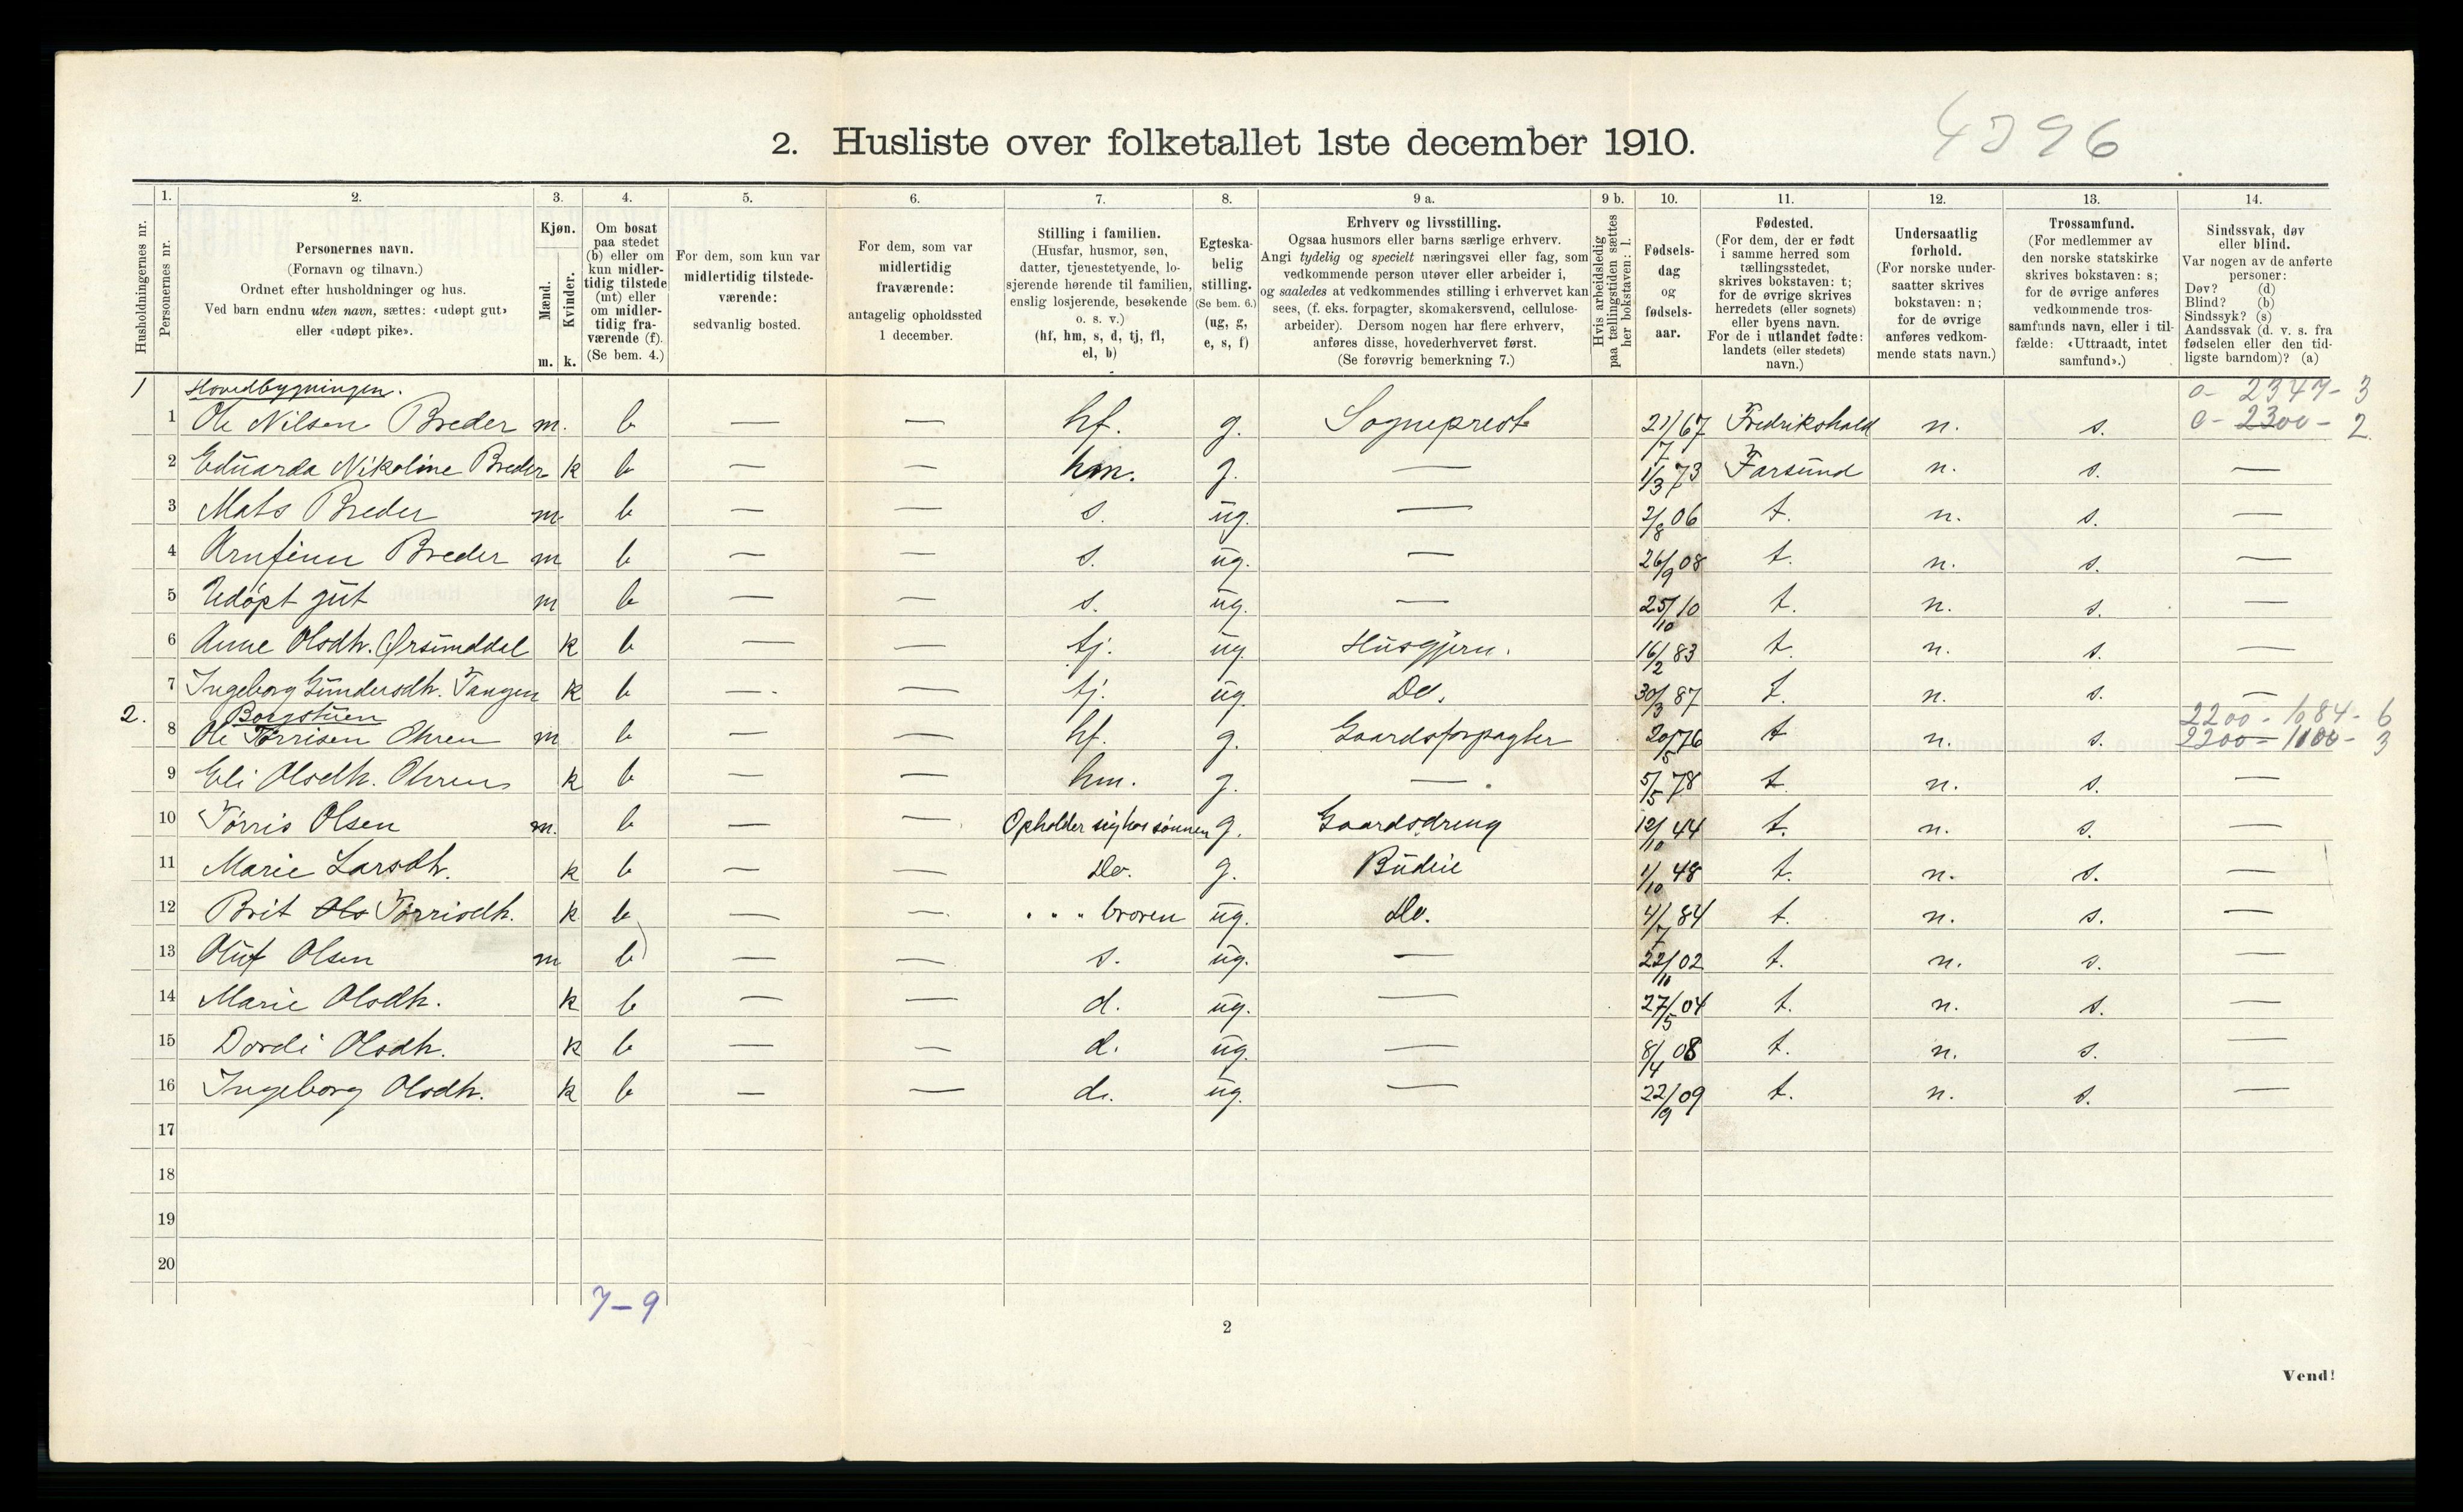 4396
2. Husliste over folketallet 1ste december 1910.
Husholdningernes nr.
1. Personernes nr.
2. Personernes navn. (Fornavn og tilnavn.) Ordnet efter husholdninger og hus. Ved barn endnu uten navn, sættes: «udøpt gut» eller «udøpt pike».
3. Kjøn. Mænd. m. Kvinder. k.
4. Om bosat paa stedet (b) eller om kun midlertidig tilstede (mt) eller om midlertidig fraværende (f). (Se bem. 4.)
5. For dem, som kun var midlertidig tilstedeværende: sedvanlig bosted.
6. For dem, som var midlertidig fraværende: antagelig opholdssted 1 december.
7. Stilling i familien. (Husfar, husmor, søn, datter, tjenestetyende, losjerende hørende til familien, enslig losjerende, besøkende o. s. v.) (hf, hm, s, d, tj, fl, el, b)
8. Egteskabelig stilling. (Se bem. 6.) (ug, g, e, s, f)
9 a. Erhverv og livsstilling. Ogsaa husmors eller barns særlige erhverv. Angi tydelig og specielt næringsvei eller fag, som vedkommende person utøver eller arbeider i, og saaledes at vedkommendes stilling i erhvervet kan sees, (f. eks. forpagter, skomakersvend, cellulosearbeider). Dersom nogen har flere erhverv, anføres disse, hovederhvervet først. (Se forøvrig bemerkning 7.)
9 b. Hvis arbeidsledig paa tællingstiden sættes her bokstaven: l.
10. Fødselsdag og fødselsaar.
11. Fødested. (For dem, der er født i samme herred som tællingsstedet, skrives bokstaven: t; for de øvrige skrives herredets (eller sognets) eller byens navn. For de i utlandet fødte: landets (eller stedets) navn.)
12. Undersaatlig forhold. (For norske undersaatter skrives bokstaven: n; for de øvrige anføres vedkommende stats navn.)
13. Trossamfund. (For medlemmer av den norske statskirke skrives bokstaven: s; for de øvrige anføres vedkommende trossamfunds navn, eller i tilfælde: «Uttraadt, intet samfund».)
14. Sindssvak, døv eller blind. Var nogen av de anførte personer: Døv? (d) Blind? (b) Sindssyk? (s) Aandssvak (d. v. s. fra fødselen eller den tidligste barndom)? (a)
1 Hovedbygningen. 0 - 2347 - 3
1 Ole Nilsen Breder m. b — — hf. g. Sogneprest 21/7 67 Fredrikshald n. s. 0 - 2300 - 2
2 Eduarda Nikoline Breder k b — — hm. g. — 1/3 73 Farsund n. s. —
3 Mats Breder m b — — s. ug. — 2/8 06 t. n. s. —
4 Arnfinn Breder m b — — s. ug. — 26/9 08 t. n. s. —
5 Udøpt gut m b — — s. ug. — 25/10 10 t. n. s. —
6 Anne Olsdtr. Ørsumdal k b — — tj. ug Husgjern. 16/2 83 t. n. s. —
7 Ingeborg Gundersdtr. Tangen k b — — tj. ug. Do. 30/3 87 t. n. s. —
2. Borgstuen 2200 - 1084 - 6
8 Ole Tørrisen Ohren m b — — hf. g. Gaardsforpagter 20/5 76 t n. s. 2200 - 1100 - 3
9 Eli Olsdtr. Ohren k b — — hm. g. — 5/5 78 t. n. s. —
10 Tørris Olsen m. b — — Opholder sig hos sønnen g. Gaardsdreng 12/10 44 t. n. s. —
11 Marie Larsdtr. k b — — Do. g. Budeie 1/10 48 t. n. s. —
12 Brit Ols Tørrisdtr. k b — — " " " broren ug. Do. 4/7 84 t. n. s. —
13 Oluf Olsen m b — — s. ug. — 22/11 02 t. n. s. —
14 Marie Olsdtr. k b — — d. ug. — 27/5 04 t. n. s. —
15 Dordi Olsdtr. k b — — d. ug. — 8/4 08 t. n. s. —
16 Ingeborg Olsdtr. k b — — d. ug. — 22/9 09 t. n. s. —
17
18
19
20
7-9
2
Vend!